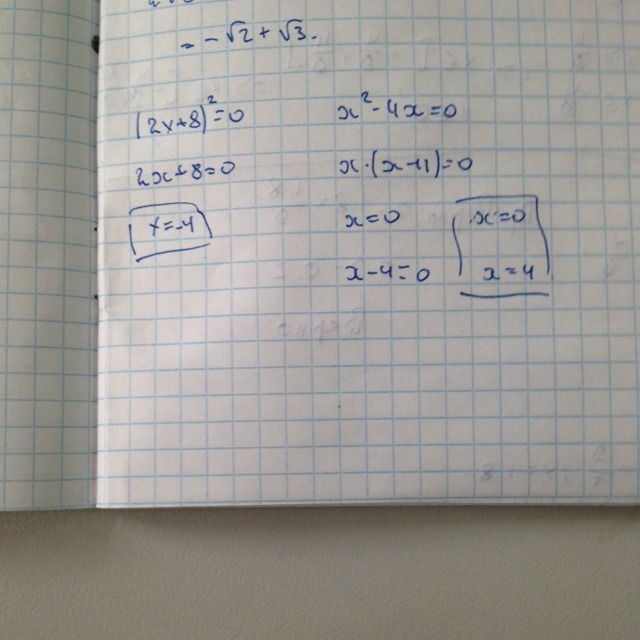 = -√2 + √3.
(2x+8)²=0
2x+8=0
x=-4
x²-4x=0
x·(x-4)=0
x=0 x=0
x-4=0 x=4